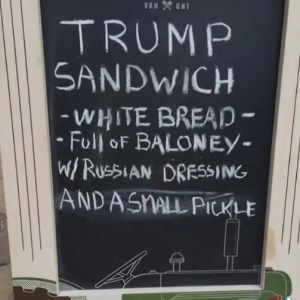 VKH ONT
TRUMP
SANDWICH
- WHITE BREAD -
- FULL OF BALONEY -
W/ RUSSIAN DRESSING
AND A SMALL PICKLE